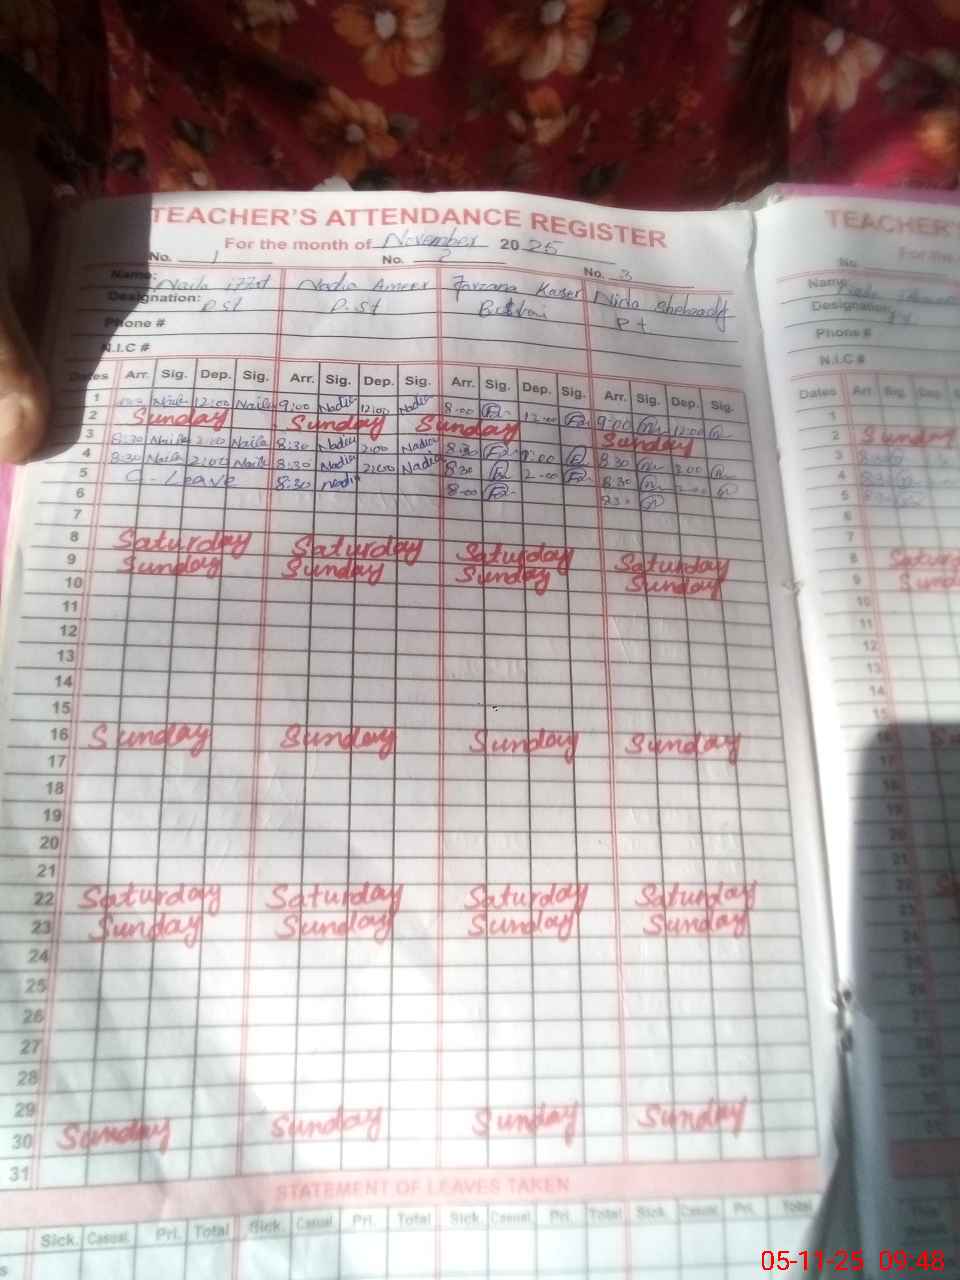 TEACHER'S ATTENDANCE REGISTER
For the month of November 2025
No. 1 No. 2 No. 3
Name: Naila izzat Nadia Ameer Farzana Kauser Nida Shehzady
Designation: P.St P.St P t
Phone #
N.I.C #
Dates Arr. Sig. Dep. Sig. Arr. Sig. Dep. Sig. Arr. Sig. Dep. Sig. Arr. Sig. Dep. Sig.
1 Naila 12:00 Naila 9:00 Nadia 12:00 Nadia 8:00 12:00 9:00 12:00
2 Sunday Sunday Sunday Sunday
3 8:30 Naila 2:00 Naila 8:30 Nadia 2:00 Nadia 8:30 2:00 8:30 2:00
4 8:30 Naila 2:00 Naila 8:30 Nadia 2:00 Nadia 8:30 2:00 8:30
5 C-Leave 8:30 Nadia 8:00 8:30
6
7
8 Saturday Saturday Saturday Saturday
9 Sunday Sunday Sunday Sunday
10
11
12
13
14
15
16 Sunday Sunday Sunday Sunday
17
18
19
20
21
22 Saturday Saturday Saturday Saturday
23 Sunday Sunday Sunday Sunday
24
25
26
27
28
29
30 Sunday Sunday Sunday Sunday
31
STATEMENT OF LEAVES TAKEN
Sick. Casual Pri. Total Sick. Casual Pri. Total Sick. Casual Pri. Total Sick. Casual Pri. Total
TEACHER'
No
Name
Designation
Phone #
N.I.C #
Dates Arr Sig. Dep
1
2 Sunday
3
4
5
6
7
8
9
10
11
12
13
14
15
16
17
18
19
20
21
22
23
05-11-25 09:48